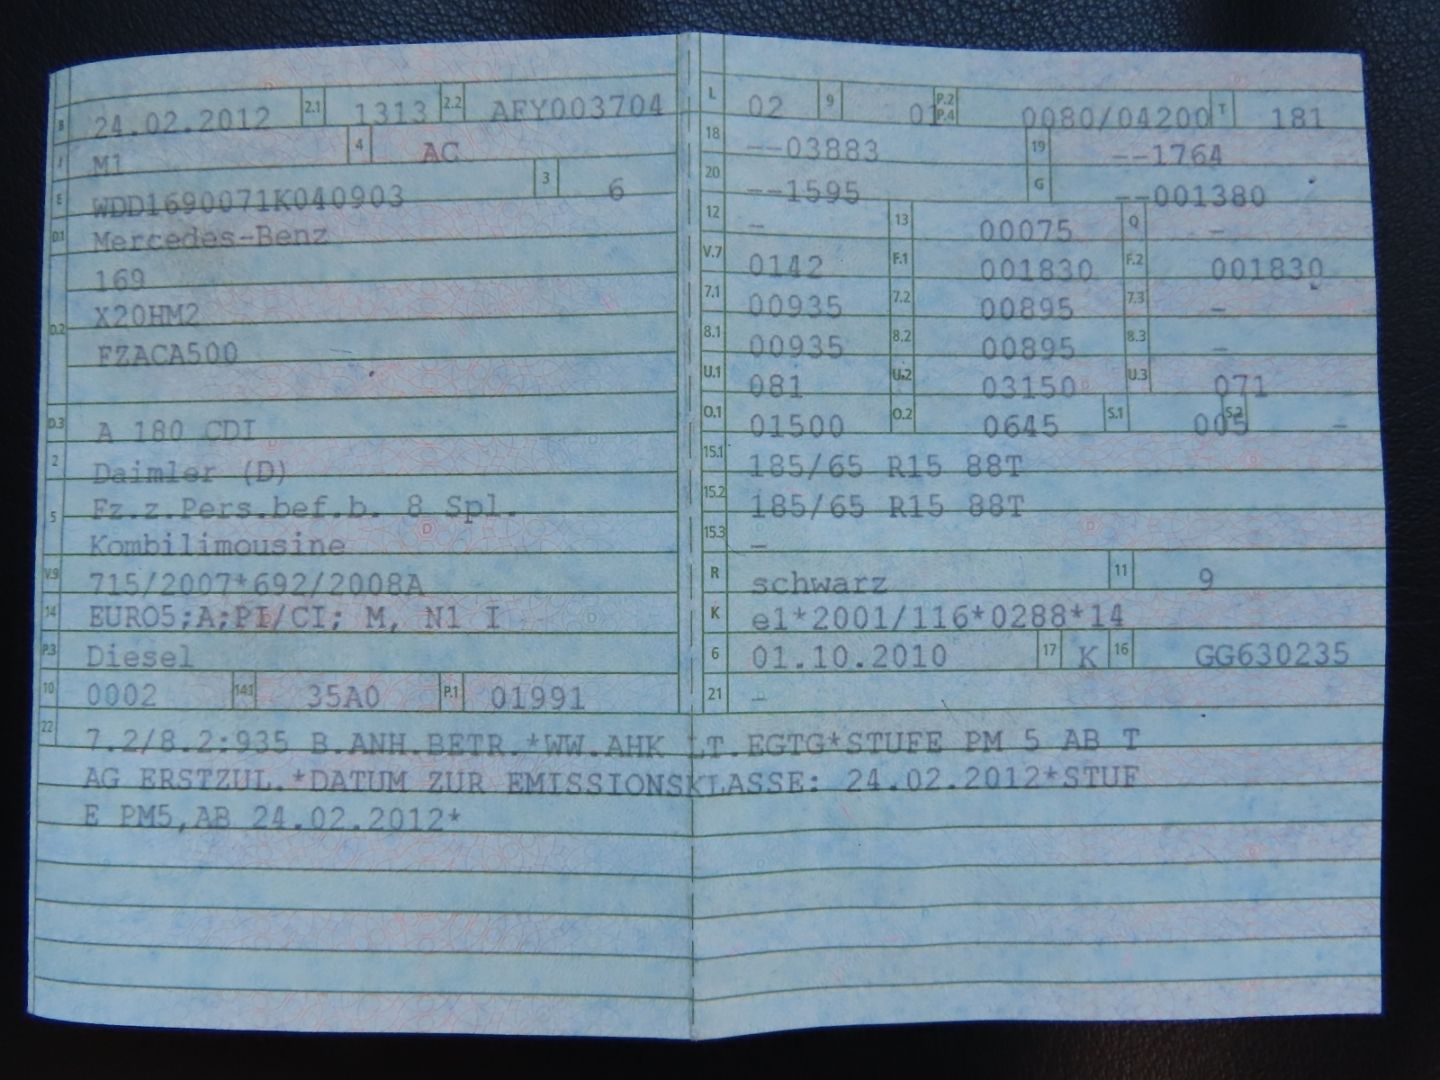 B 24.02.2012 2.1 1313 2.2 AFY003704
J M1 4 AC
E WDD1690071K040903 3 6
D.1 Mercedes-Benz
169
D.2 X20HM2
FZACA500
D.3 A 180 CDI
2 Daimler (D)
5 Fz.z.Pers.bef.b. 8 Spl.
Kombilimousine
V.9 715/2007*692/2008A
14 EURO5;A;PI/CI; M, N1 I
P.3 Diesel
10 0002 14.1 35A0 P.1 01991
L 02 9 01 P.2 P.4 0080/04200 T 181
18 --03883 19 --1764
20 --1595 G --001380
12 - 13 00075 Q -
V.7 0142 F.1 001830 F.2 001830
7.1 00935 7.2 00895 7.3 -
8.1 00935 8.2 00895 8.3 -
U.1 081 U.2 03150 U.3 071
O.1 01500 O.2 0645 S.1 005 S.2 -
15.1 185/65 R15 88T
15.2 185/65 R15 88T
15.3 -
R schwarz 11 9
K e1*2001/116*0288*14
6 01.10.2010 17 K 16 GG630235
21 -
22 7.2/8.2:935 B.ANH.BETR.*WW.AHK LT.EGTG*STUFE PM 5 AB T
AG ERSTZUL.*DATUM ZUR EMISSIONSKLASSE: 24.02.2012*STUF
E PM5,AB 24.02.2012*